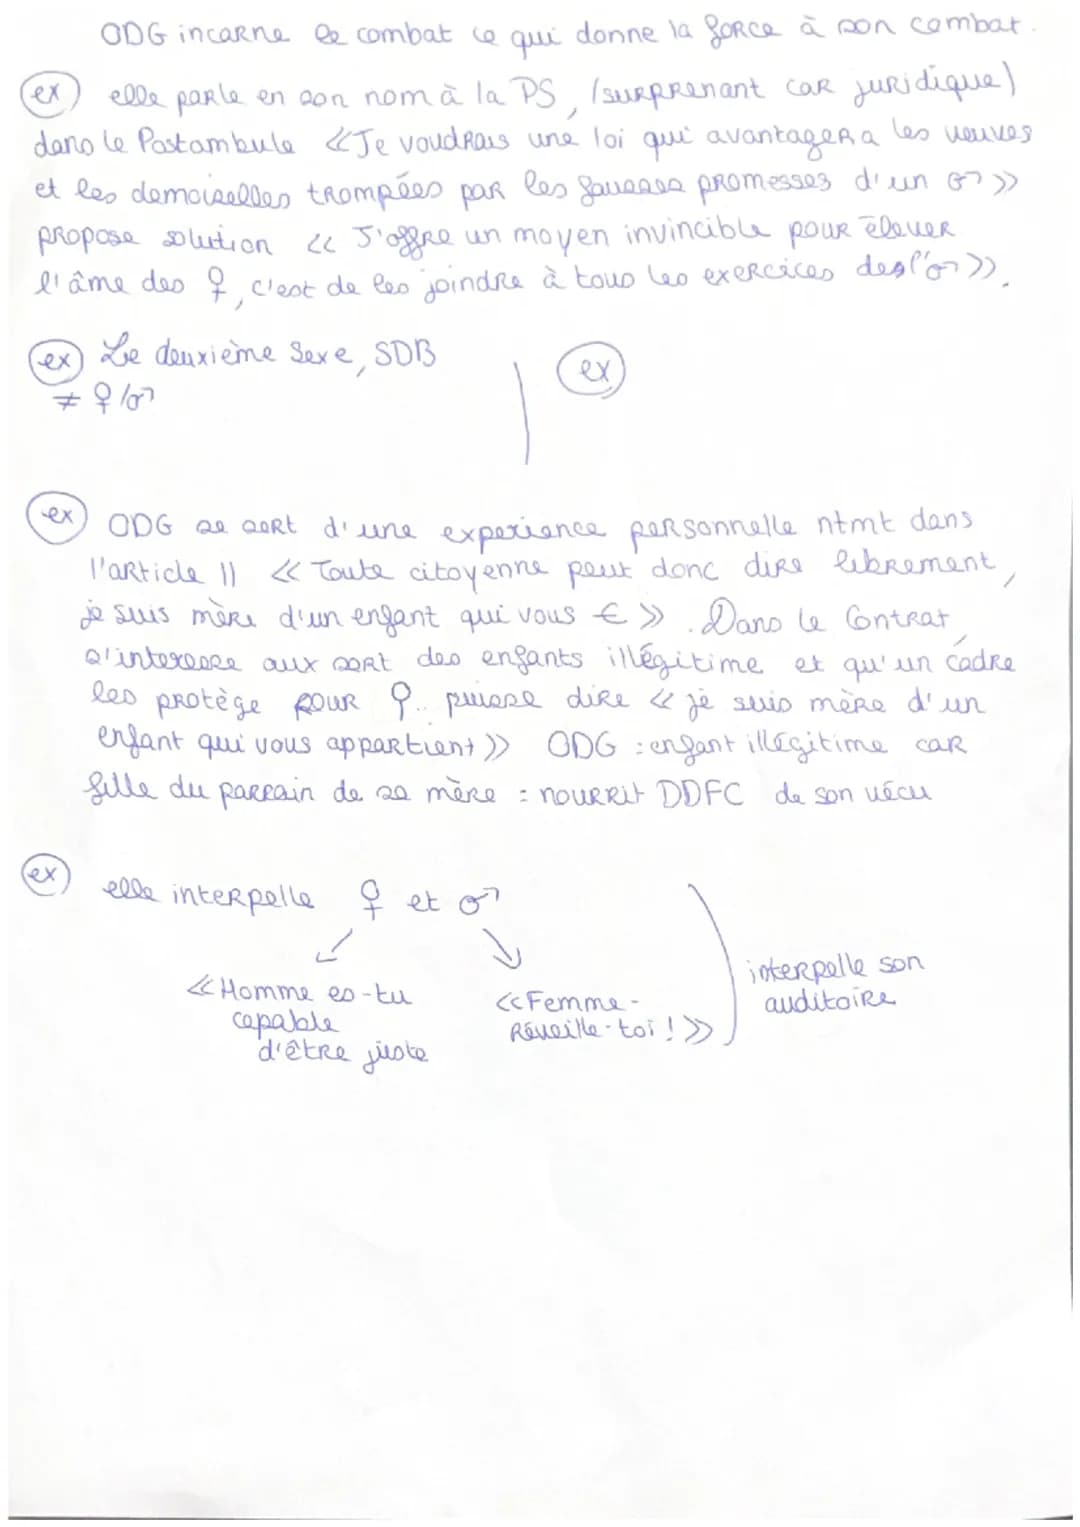 ODG incarne le combat ce qui donne la force à son combat.
ex elle parle en son nom à la PS, (surprenant car juridique)
dans le Postambule «Je voudrais une loi qui avantagera les veuves
et les demoiselles trompées par les fausses promesses d'un ♂»
propose solution « J'offre un moyen invincible pour élever
l'âme des ♀, c'est de les joindre à tous les exercices des l'♂».
ex Le deuxième Sexe, SDB
≠ ♀/♂
ex
ex ODG se sert d'une experience personnelle ntmt dans
l'article 11 « Toute citoyenne peut donc dire librement,
je suis mère d'un enfant qui vous € ». Dans le Contrat
s'interesse aux sort des enfants illégitime et qu'un cadre
les protège pour ♀.. puisse dire « je suis mère d'un
enfant qui vous appartient» ODG : enfant illégitime car
fille du parrain de sa mère = nourrit DDFC de son vécu
ex elle interpelle ♀ et ♂
«Homme es-tu
capable
d'être juste
«Femme-
Réveille-toi !»
interpelle son
auditoire